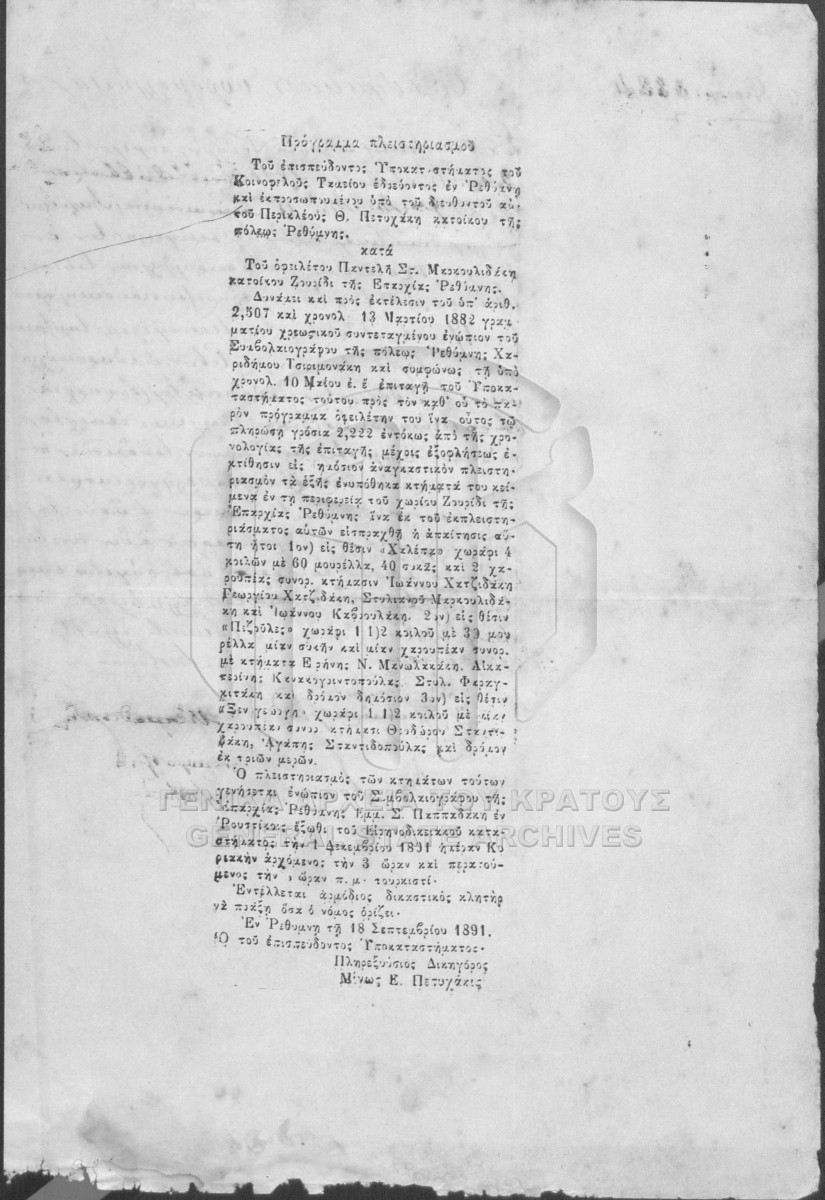 Πρόγραμμα πλειστηριασμοῦ
Τοῦ ἐπισπεύδοντος Ὑποκαταστήματος τοῦ
Κοινωφελοῦς Ταμείου ἑδρεύοντος ἐν Ῥεθύμνῃ
καὶ ἐκπροσωπουμένου ὑπὸ τοῦ διευθυντοῦ αὐ-
τοῦ Περικλέους Θ. Πετυχάκη κατοίκου τῆς
πόλεως Ῥεθύμνης.
κατά
Τοῦ ὀφειλέτου Παντελῆ Στ. Μαρκουλιδάκη
κατοίκου Ζουρίδι τῆς Ἐπαρχίας Ῥεθύμνης.
Δυνάμει καὶ πρὸς ἐκτέλεσιν τοῦ ὑπ' ἀριθ.
2,507 καὶ χρονολ 13 Μαρτίου 1882 γραμ
ματίου χρεωστικοῦ συντεταγμένου ἐνώπιον τοῦ
Συμβολαιογράφου τῆς πόλεως Ῥεθύμνης Χα-
ριδήμου Τσιριμονάκη καὶ συμφώνως τῇ ὑπὸ
χρονολ. 10 Μαΐου ἐ. ἔ ἐπιταγῇ τοῦ Ὑποκα-
ταστήματος τούτου πρὸς τὸν καθ' οὗ τὸ πα-
ρὸν πρόγραμμα ὀφειλέτην του ἵνα οὗτος τῷ
πληρώσῃ γρόσια 2,222 ἐντόκως ἀπὸ τῆς χρο-
νολογίας τῆς ἐπιταγῆς μέχρις ἐξοφλήσεως ἐ-
κτίθησιν εἰς ημόσιον ἀναγκαστικὸν πλειστη-
ριασμὸν τὰ ἑξῆς ἐνυπόθηκα κτήματά του κεί-
μενα ἐν τῃ περιφερείᾳ τοῦ χωρίου Ζουρίδι τῆς
Ἐπαρχίας Ῥεθύμνης ἵνα ἐκ τοῦ ἐκπλειστη-
ριάσματος αὐτῶν εἰσπραχθῇ ἡ ἀπαίτησις αὕ-
τη ἤτοι 1ον) εἰς θέσιν «Χαλέπα» χωράφι 4
κοιλῶν μὲ 60 μουρέλλα, 40 συκᾶς καὶ 2 χα-
ρουπέας συνορ. κτήμασιν Ἰωάννου Χατζιδάκη
Γεωργίου Χατζιδάκη, Στυλιανοῦ Μαρκουλιδά-
κη καὶ Ἰωάννου Καβρουλάκη. 2ον) εἰς θέσιν
«Πιζοῦλες» χωράφι 1 1)2 κοιλοῦ μὲ 30 μου
ρέλλα μίαν συκῆν καὶ μίαν χαρουπέαν συνορ.
μὲ κτήματα Εἰρήνης Ν. Μανωλακάκη. Αἰκα-
τερίνης Κανακογριντοπούλας Στυλ. Φαραγ-
κιτάκη καὶ δρόμον δημόσιον 3ον) εἰς θέσιν
«Ξεν γεωργη» χωράφι 1 1)2 κοιλοῦ μὲ μίαν
χαρουπέαν συνορ κτήμασι Θεοδώρου Σταντι-
βάκη, Ἀγάπης Σταντιδοπούλας καὶ δρόμον
ἐκ τριῶν μερῶν.
Ὁ πλειστηριασμὸς τῶν κτημάτων τούτων
γενήσεται ἐνώπιον τοῦ Συμβολαιογράφου τῆς
Ἐπαρχίας Ῥεθύμνης Ἐμμ. Σ. Παππαδάκη ἐν
Ῥουστίκοις ἔξωθι τοῦ Εἰρηνοδικειακοῦ κατα-
στήματος τὴν 1 Δεκεμβρίου 1891 ἡμέραν Κυ
ριακὴν ἀρχόμενος τὴν 3 ὥραν καὶ περατού-
μενος τὴν ὥραν π.μ. τουρκιστί.
Ἐντέλλεται ἁρμόδιος δικαστικὸς κλητὴρ
νὰ πράξῃ ὅσα ὁ νόμος ὁρίζει.
Ἐν Ῥεθύμνῃ τῇ 18 Σεπτεμβρίου 1891.
Ὁ τοῦ ἐπισπεύδοντος Ὑποκαταστήματος.
Πληρεξούσιος Δικηγόρος
Μίνως Ε. Πετυχάκις
ΓΕΝΙΚΑ ΑΡΧΕΙΑ ΤΟΥ ΚΡΑΤΟΥΣ
GENERAL STATE ARCHIVES